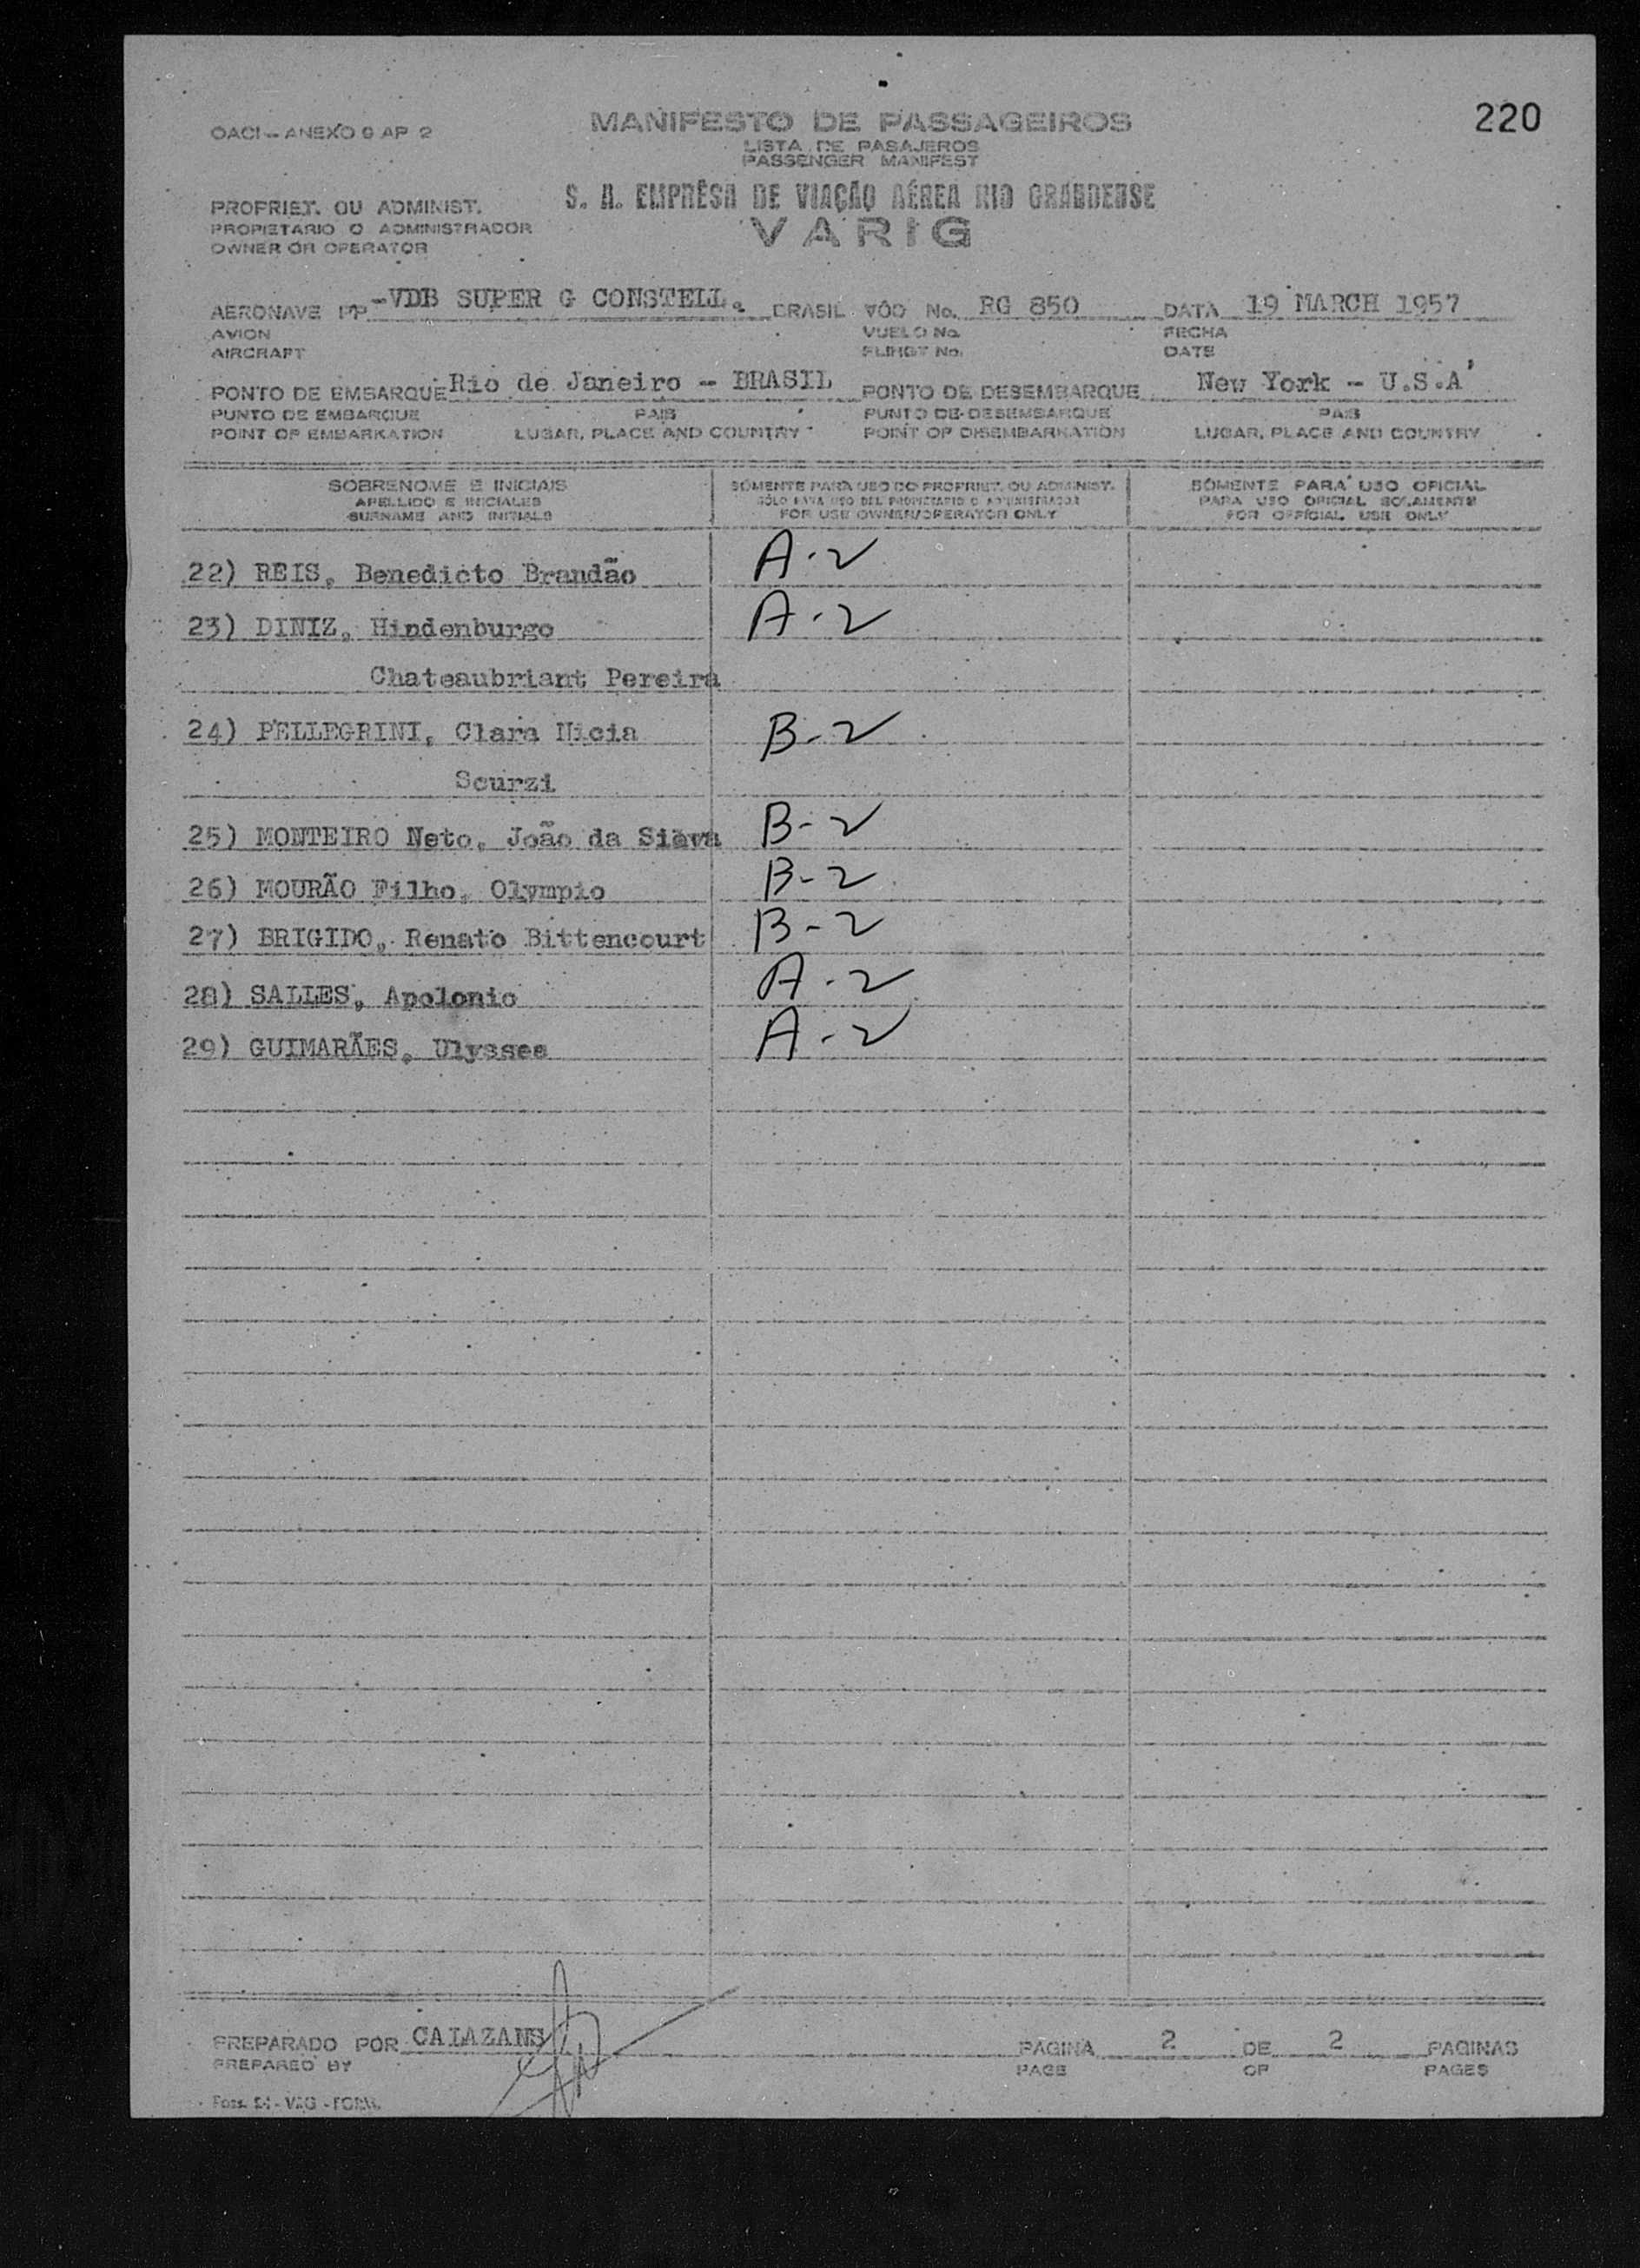 220
OACI - ANEXO 9 AP 2
MANIFESTO DE PASSAGEIROS
LISTA DE PASAJEROS
PASSENGER MANIFEST
PROPRIET. OU ADMINIST.
PROPIETARIO O ADMINISTRADOR
OWNER OR OPERATOR
S. A. EMPRÊSA DE VIAÇÃO AÉREA RIO GRANDENSE
VARIG
AERONAVE PP -VDB SUPER G CONSTELL. BRASIL VÔO No. RG 850 DATA 19 MARCH 1957
AVION VUELO No. FECHA
AIRCRAFT FLIHGT No. DATE
PONTO DE EMBARQUE Rio de Janeiro - BRASIL PONTO DE DESEMBARQUE New York - U.S.A
PUNTO DE EMBARQUE PAIS PUNTO DE DESEMBARQUE PAIS
POINT OF EMBARKATION LUGAR, PLACE AND COUNTRY POINT OF DISEMBARKATION LUGAR, PLACE AND COUNTRY
SOBRENOME E INICIAIS SÓMENTE PARA USO DO PROPRIET. OU ADMINIST. SÓMENTE PARA USO OFICIAL
APELLIDO E INICIALES SÓLO PARA USO DEL PROPIETARIO O ADMINISTRADOR PARA USO OFICIAL SOLAMENTE
SURNAME AND INITIALS FOR USE OWNER/OPERATOR ONLY FOR OFFICIAL USE ONLY
22) REIS, Benedicto Brandão A-2
23) DINIZ, Hindenburgo A-2
Chateaubriant Pereira
24) PELLEGRINI, Clara Nicia B-2
Scurzi
25) MONTEIRO Neto, João da B-2
26) MOURÃO Filho, Olympio B-2
27) BRIGIDO, Renato Bittencourt B-2
28) SALLES, Apolonio A-2
29) GUIMARÃES, Ulysses A-2
PREPARADO POR CALAZANS PAGINA 2 DE 2 PAGINAS
PREPARED BY PAGE OF PAGES